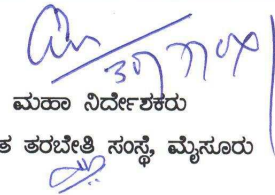 ಮಹಾ ನಿರ್ದೇಶಕರು
ತರಬೇತಿ ಸಂಸ್ಥೆ, ಮೈಸೂರು